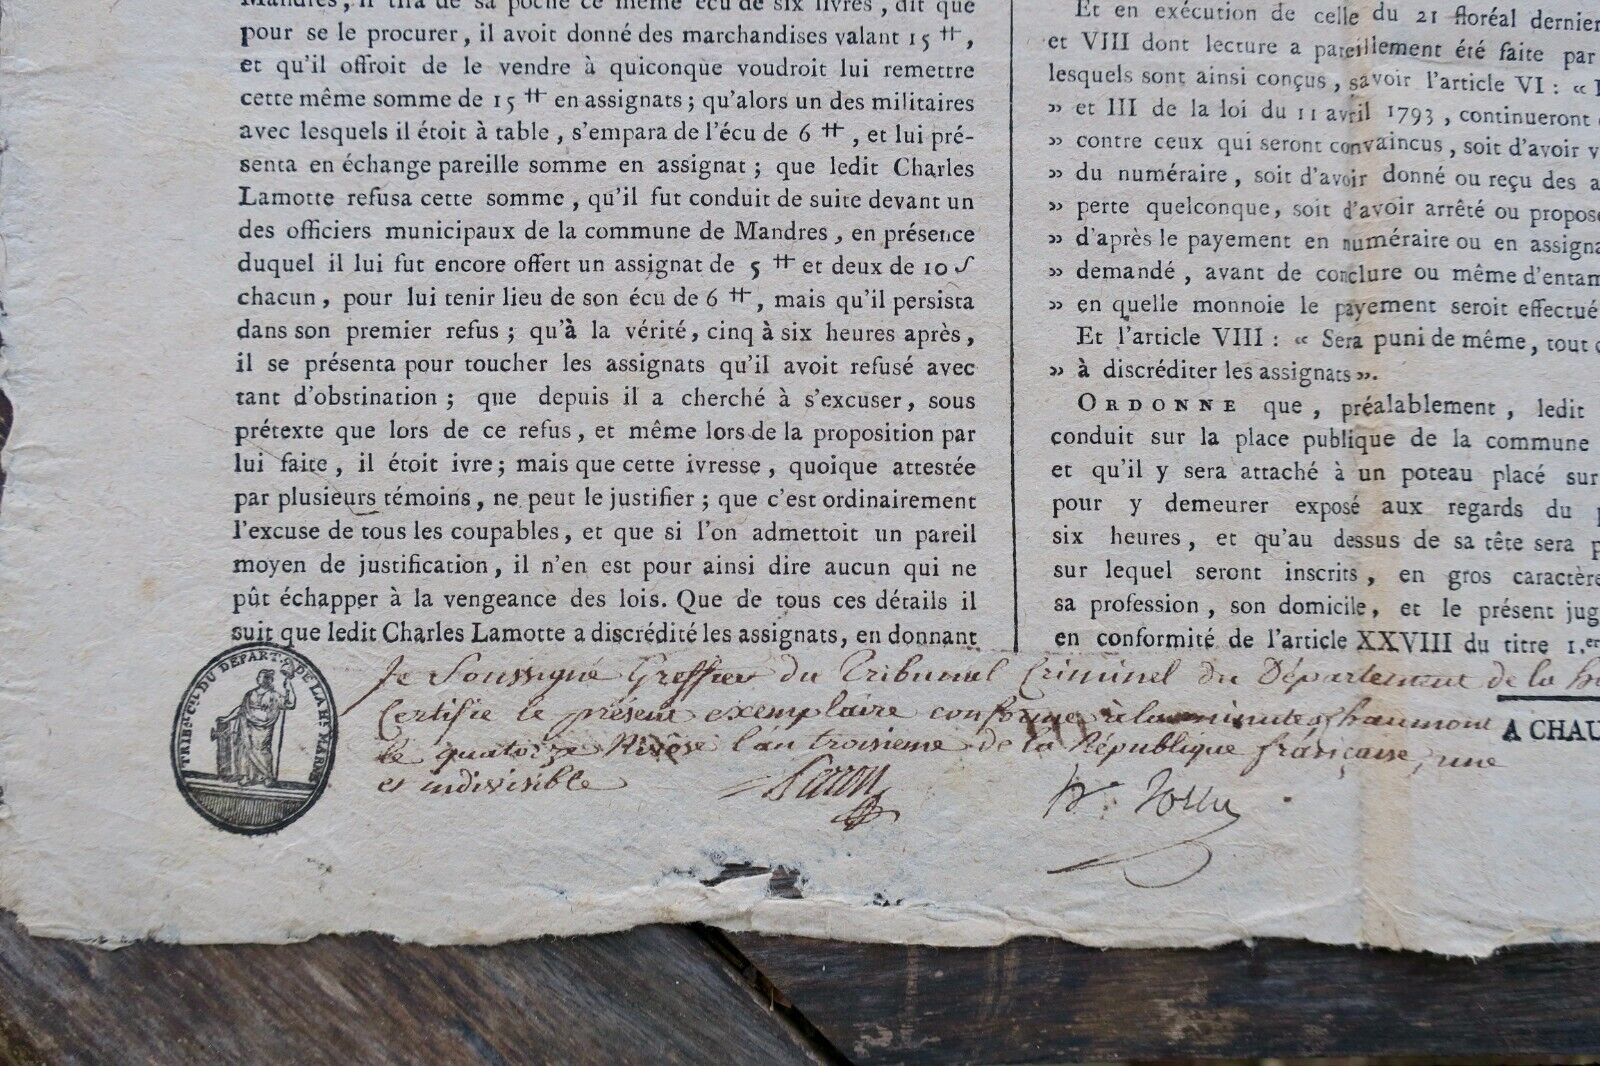 Mandres, il tira de sa poche ce même écu de six livres, dit que
pour se le procurer, il avoit donné des marchandises valant 15 ₶,
et qu'il offroit de le vendre à quiconque voudroit lui remettre
cette même somme de 15 ₶ en assignats; qu'alors un des militaires
avec lesquels il étoit à table, s'empara de l'écu de 6 ₶, et lui pré-
senta en échange pareille somme en assignat; que ledit Charles
Lamotte refusa cette somme, qu'il fut conduit de suite devant un
des officiers municipaux de la commune de Mandres, en présence
duquel il lui fut encore offert un assignat de 5 ₶ et deux de 10 ſ
chacun, pour lui tenir lieu de son écu de 6 ₶, mais qu'il persista
dans son premier refus; qu'à la vérité, cinq à six heures après,
il se présenta pour toucher les assignats qu'il avoit refusé avec
tant d'obstination; que depuis il a cherché à s'excuser, sous
prétexte que lors de ce refus, et même lors de la proposition par
lui faite, il étoit ivre; mais que cette ivresse, quoique attestée
par plusieurs témoins, ne peut le justifier; que c'est ordinairement
l'excuse de tous les coupables, et que si l'on admettoit un pareil
moyen de justification, il n'en est pour ainsi dire aucun qui ne
pût échapper à la vengeance des lois. Que de tous ces détails il
suit que ledit Charles Lamotte a discrédité les assignats, en donnant
Et en exécution de celle du 21 floréal dernier
et VIII dont lecture a pareillement été faite par
lesquels sont ainsi conçus, savoir l'article VI : «
» et III de la loi du 11 avril 1793, continueront
» contre ceux qui seront convaincus, soit d'avoir v
» du numéraire, soit d'avoir donné ou reçu des a
» perte quelconque, soit d'avoir arrêté ou propos
» d'après le payement en numéraire ou en assigna
» demandé, avant de conclure ou même d'entam
» en quelle monnoie le payement seroit effectué
Et l'article VIII : « Sera puni de même, tout
» à discréditer les assignats ».
ORDONNE que, préalablement, ledit
conduit sur la place publique de la commune
et qu'il y sera attaché à un poteau placé sur
pour y demeurer exposé aux regards du
six heures, et qu'au dessus de sa tête sera p
sur lequel seront inscrits, en gros caractère
sa profession, son domicile, et le présent jug
en conformité de l'article XXVIII du titre 1.er
TRIB. CR. DU DEPART. DE LA H. MARNE
Je Soussigné Greffier du Tribunal Criminel du Département de la
Certifie le présent exemplaire conforme à la minute Chaumont
le quatorze Nivôse l'an troisieme de la République française, une
et indivisible
A CHAU